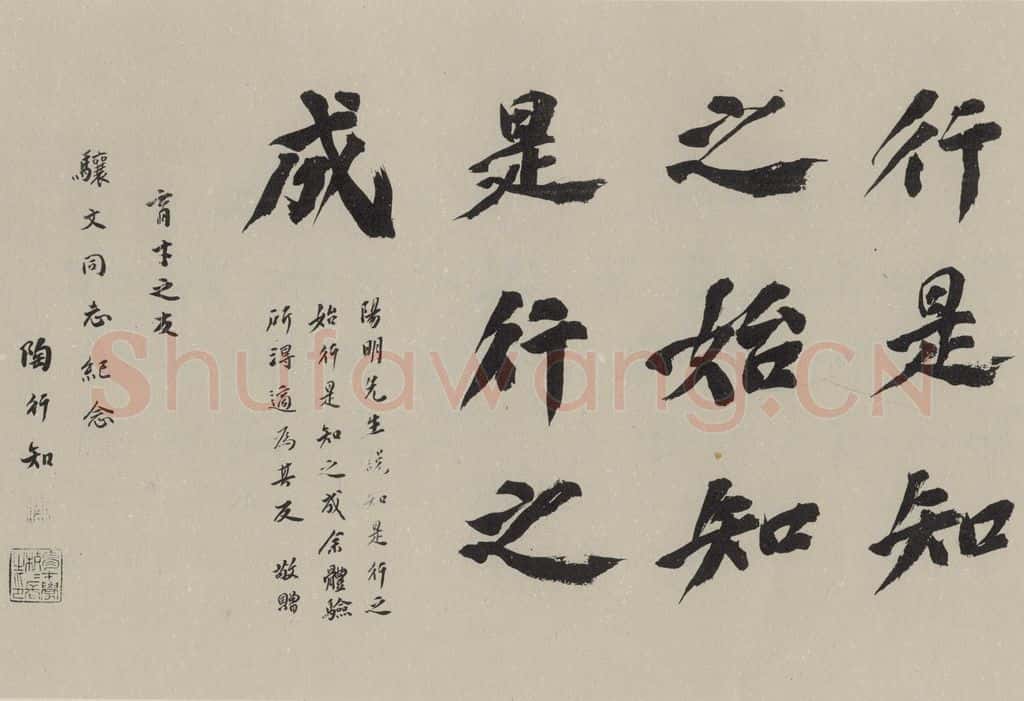 行是知
之始知
是行之
成
陽明先生說知是行之
始行是知之成余體驗
所得適為其反 敬贈
育才之友
驤文同志紀念
陶行知
Shufawang.CN